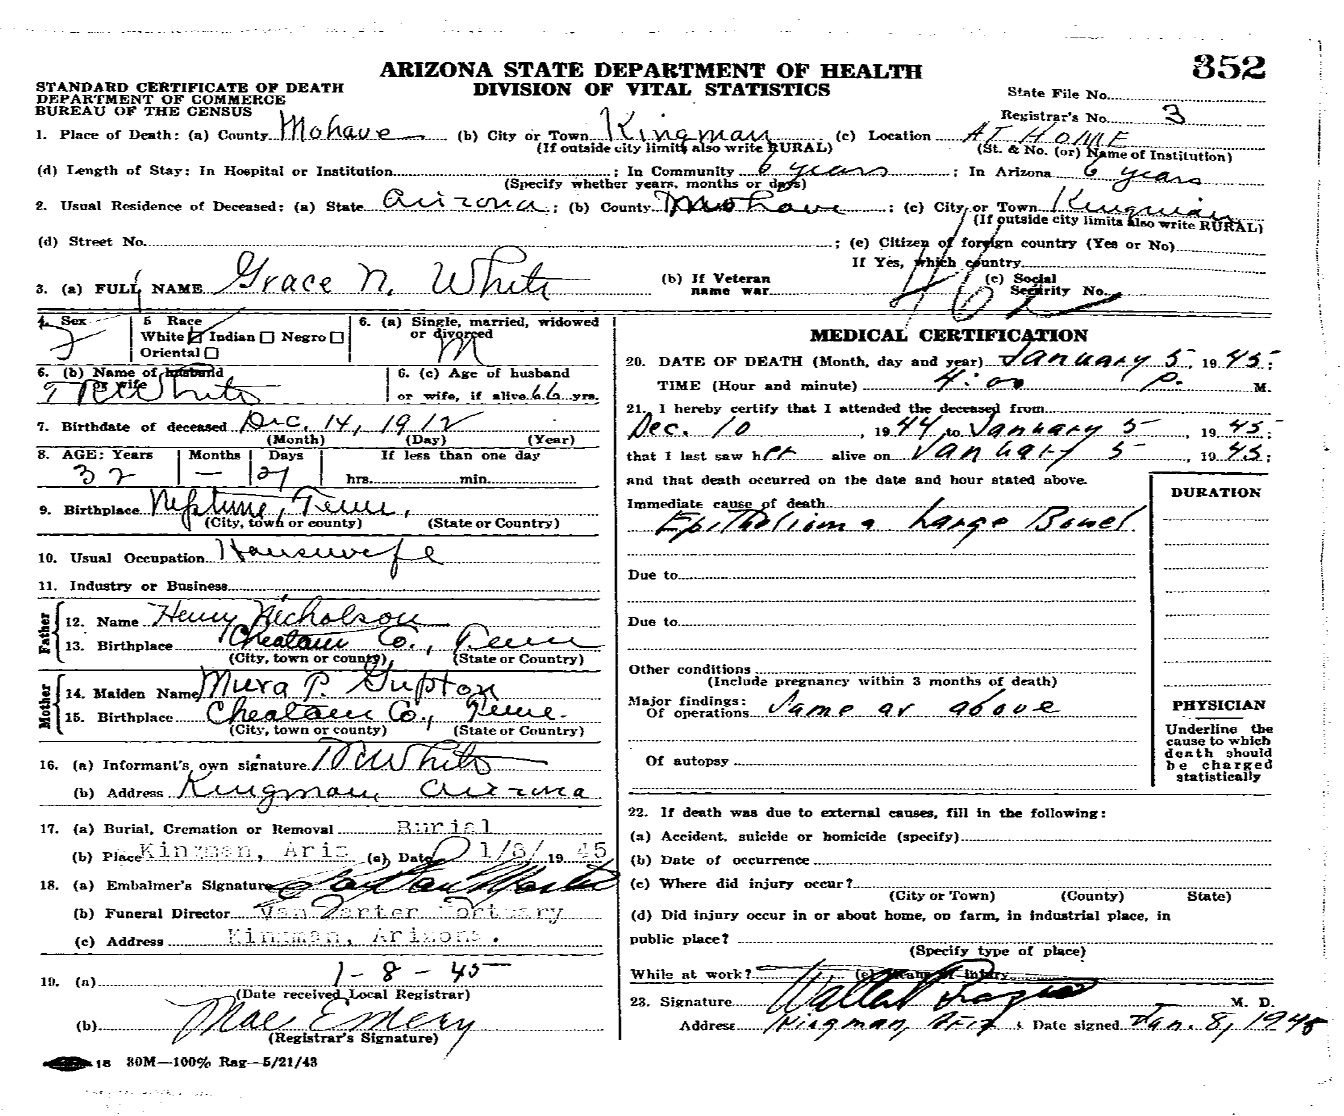 352
ARIZONA STATE DEPARTMENT OF HEALTH
DIVISION OF VITAL STATISTICS
STANDARD CERTIFICATE OF DEATH
DEPARTMENT OF COMMERCE
BUREAU OF THE CENSUS
State File No.
Registrar's No. 3
1. Place of Death: (a) County Mohave (b) City or Town Kingman (c) Location AT HOME
(If outside city limits also write RURAL) (St. & No. (or) Name of Institution)
(d) Length of Stay: In Hospital or Institution ; In Community 6 years ; In Arizona 6 years
(Specify whether years, months or days)
2. Usual Residence of Deceased: (a) State Arizona ; (b) County Mohave ; (c) City or Town Kingman
(If outside city limits also write RURAL)
(d) Street No. ; (e) Citizen of foreign country (Yes or No)
If Yes, which country
3. (a) FULL NAME Grace N. White (b) If Veteran name war (c) Social Security No.
4. Sex F 5 Race White Indian Negro Oriental 6. (a) Single, married, widowed or divorced M
6. (b) Name of husband or wife White 6. (c) Age of husband or wife, if alive 66 yrs.
7. Birthdate of deceased Dec. 14, 1912
(Month) (Day) (Year)
8. AGE: Years Months Days If less than one day
32 — 21 hrs. min.
9. Birthplace Neptune, Tenn.
(City, town or county) (State or Country)
10. Usual Occupation Housewife
11. Industry or Business
Father
12. Name Henry Nicholson
13. Birthplace Cheatam Co., Tenn
(City, town or county) (State or Country)
Mother
14. Maiden Name P. Gupton
15. Birthplace Cheatam Co., Tenn.
(City, town or county) (State or Country)
16. (a) Informant's own signature White
(b) Address Kingman, Arizona
17. (a) Burial, Cremation or Removal Burial
(b) Place Kingman, Ariz (c) Date 1/8/ 19 45
18. (a) Embalmer's Signature
(b) Funeral Director Van Marter Mortuary
(c) Address Kingman, Arizona.
19. (a) 1-8-45
(Date received Local Registrar)
(b) Mae Emery
(Registrar's Signature)
18 30M—100% Rag—5/21/43
MEDICAL CERTIFICATION
20. DATE OF DEATH (Month, day and year) January 5, 1945
TIME (Hour and minute) 4:00 P. M.
21. I hereby certify that I attended the deceased from
Dec. 10, 1944 to January 5, 1945;
that I last saw her alive on January 5, 1945;
and that death occurred on the date and hour stated above.
DURATION
Immediate cause of death
Epithelioma Large Bowel
Due to
Due to
Other conditions
(Include pregnancy within 3 months of death)
Major findings:
Of operations Same as above
Of autopsy
PHYSICIAN
Underline the
cause to which
death should
be charged
statistically
22. If death was due to external causes, fill in the following:
(a) Accident, suicide or homicide (specify)
(b) Date of occurrence
(c) Where did injury occur?
(City or Town) (County) State)
(d) Did injury occur in or about home, on farm, in industrial place, in
public place?
(Specify type of place)
While at work? (e) Means of injury
23. Signature Walter M. D.
Address Kingman, Ariz Date signed Jan. 8, 1945